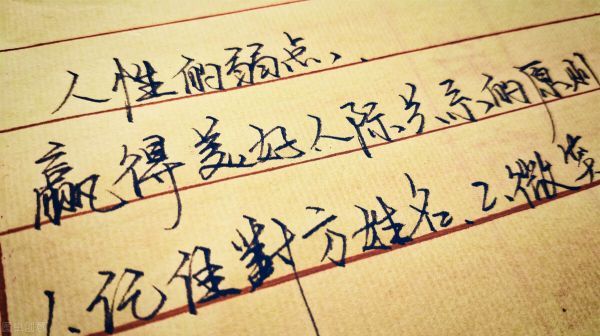 人性的弱点、.
赢得美好人际关系的原则
1、记住對方姓名、2、微笑